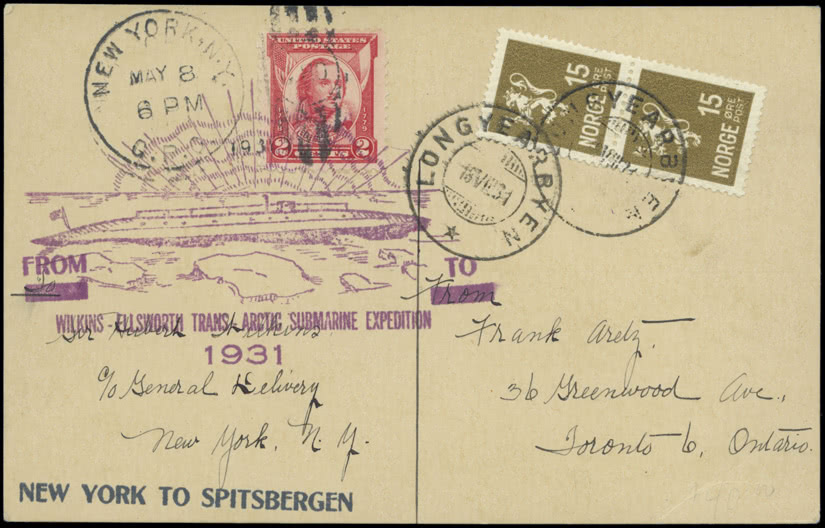 NEW YORK, N.Y.
MAY 8
6 PM
193
UNITED STATES
POSTAGE
1779
2 CENTS 2
15
NORGE
ØRE
POST
15
NORGE
ØRE
POST
LONGYEARBYEN
LONGYEARB
FROM
To
TO
From
WILKINS-ELLSWORTH TRANS-ARCTIC SUBMARINE EXPEDITION
1931
Sir Hubert Wilkins
c/o General Delivery
New York, N.Y.
Frank Aretz.
36 Greenwood Ave.,
Toronto 6, Ontario.
NEW YORK TO SPITSBERGEN